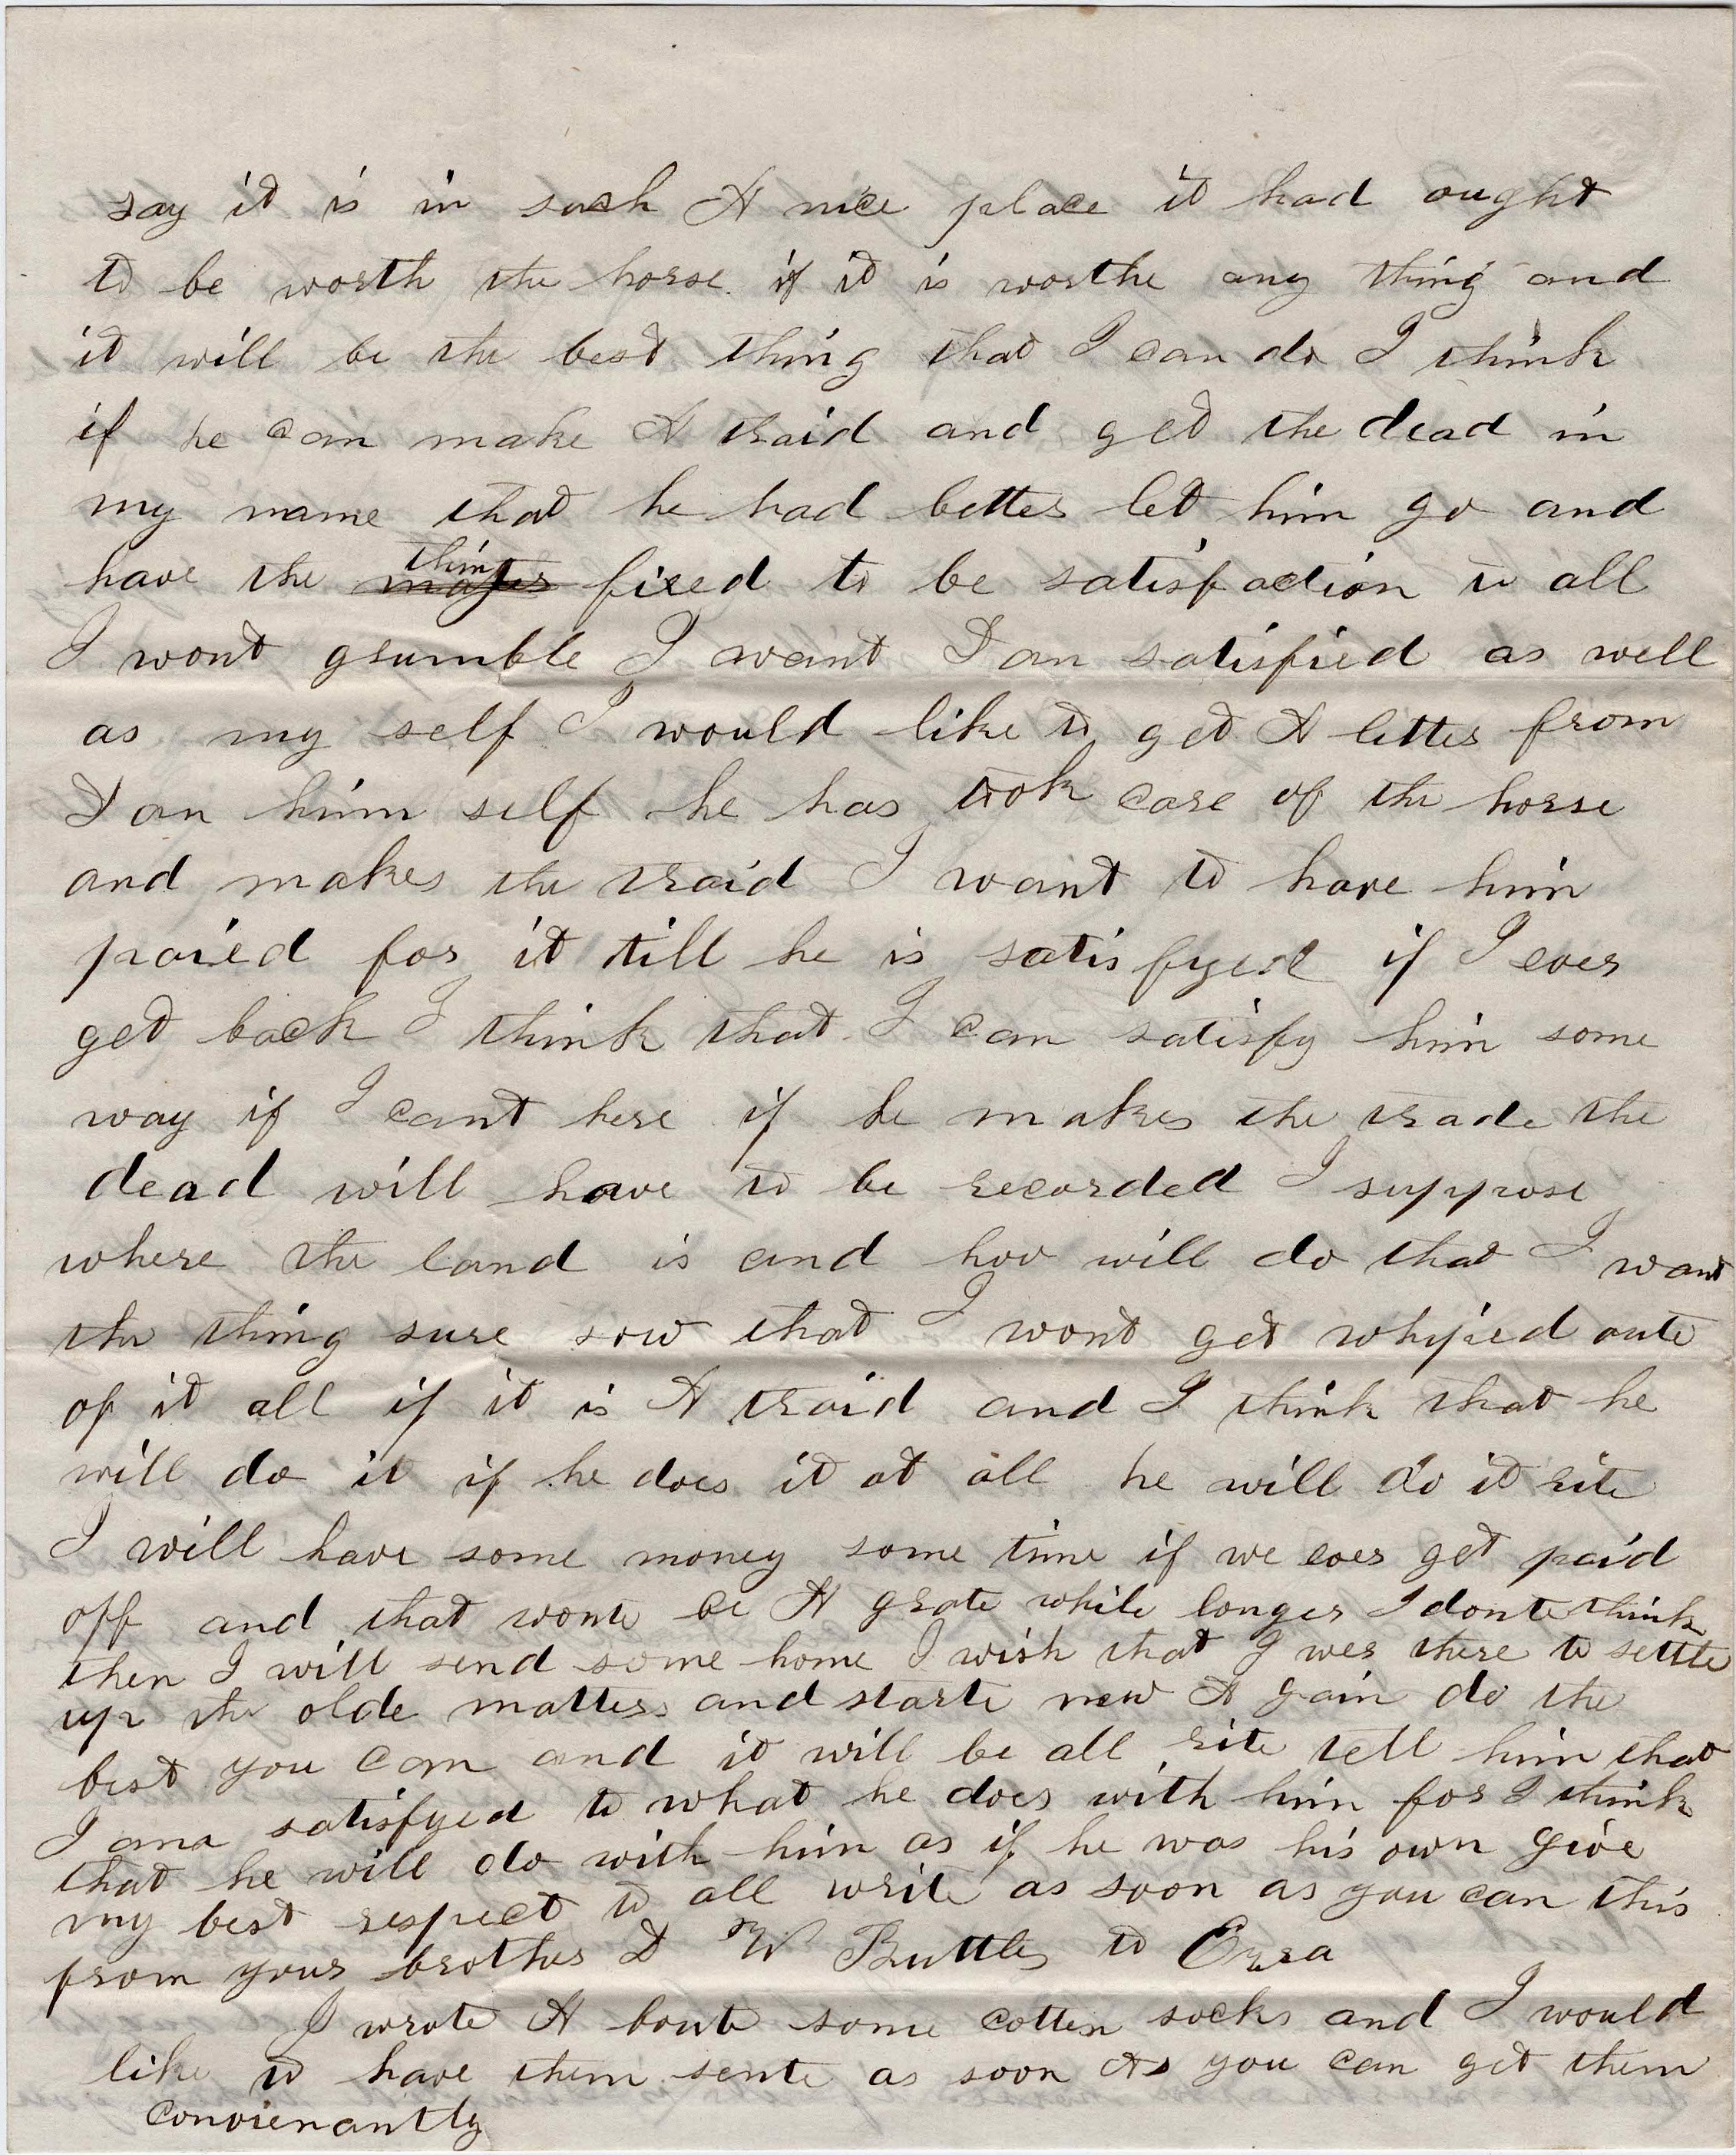 say it is in such A nice place it had ought
to be worth the horse if it is worthe any thing and
it will be the best thing that I can do I think
if he can make A traid and get the dead in
my name that he had better let him go and
have the thing fixed to be satisfaction to all
I wont grumble I want Dan satisfied as well
as my self I would like to get A letter from
Dan him self he has took care of the horse
and makes the traid I want to have him
paied for it till he is satisfyed if I ever
get back I think that I can satisfy him some
way if I cant here if he makes the trade the
dead will have to be recorded I suppose
where the land is and hoo will do that I want
the thing sure sow that I wont get whiped oute
of it all if it is A traid and I think that he
will do it if he does it at all he will do it rite
I will have some money some time if we ever get paid
off and that wonte be A grate while longer I donte think
then I will send some home I wish that I wer there to settle
up the olde matters and starte new A gain do the
best you can and it will be all rite tell him that
I ama satisfyed to what he does with him for I think
that he will do with him as if he was his own give
my best respect to all write as soon as you can this
from your brother D W Buttles to Ezra
I wrote A boute some cotten socks and I would
like to have them sente as soon As you can get them
convienantly